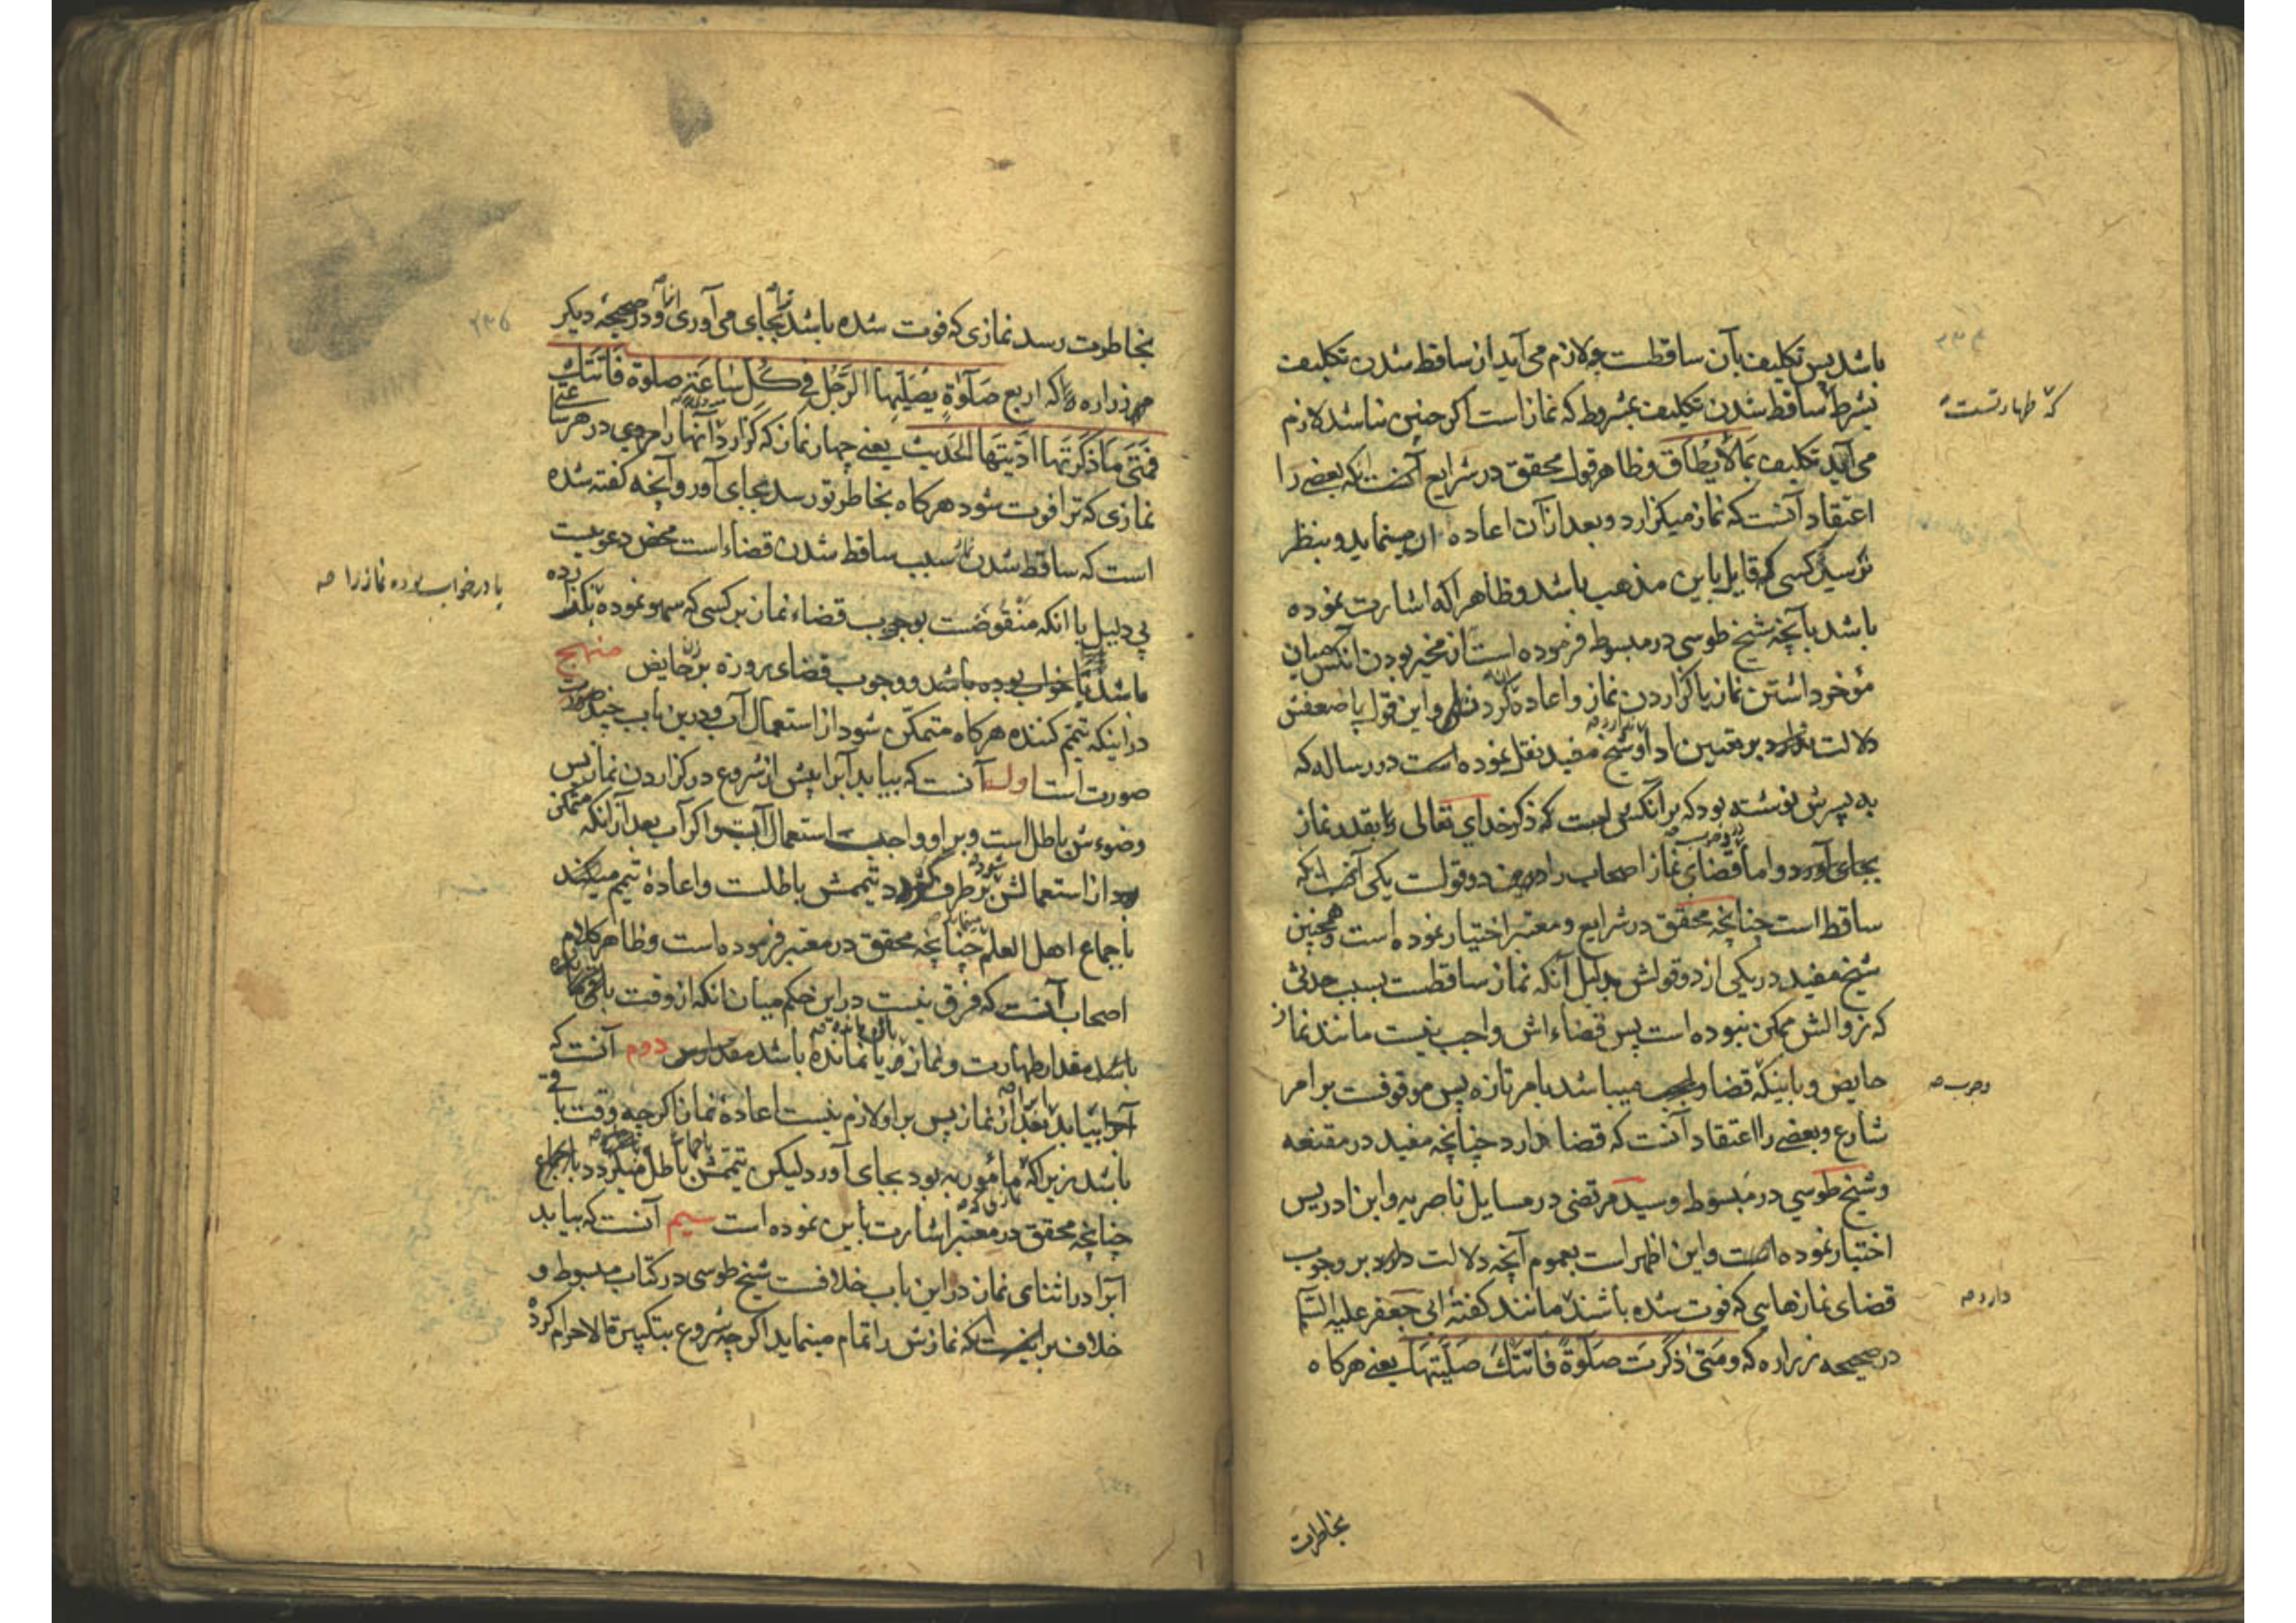 باشد پس تکلیف بآن ساقطست و لازم می آید از ساقط شدن تکلیف
بشرط ساقط شدن تکلیف بمشروط که نماز است اگر چنین نباشد لازم
که طهارتست
می آید تکلیف بمالایطاق و ظاهر قول محقق در شرایع آنست که بعضی را
اعتقاد آنست که نماز میکزارد و بعد از آن اعاده آن مینماید و بنظر
نرسید کسی که قایل باین مذهب باشد و ظاهرا که اشارت نموده
باشد بآنچه شیخ طوسی در مبسوط فرموده است از مخیر بودن آنکس میان
مؤخر داشتن نماز یا کزاردن نماز و اعاده کردن و این قول با ضعفش
دلالت ندارد بر تعیین ادا و شیخ مفید نقل نموده است در رساله که
به پسرش نوشته بود که بر آنکس است که ذکر خدای تعالی را بقدر نماز
بجای آورد و اما قضای نماز اصحاب را درین دو قولست یکی آنست که
ساقط است چنانچه محقق در شرایع و معتبر اختیار نموده است و همچنین
شیخ مفید در یکی از دو قولش بدلیل آنکه نماز ساقطست بسبب حدثی
که زوالش ممکن نبوده است پس قضاء اش واجب نیست مانند نماز
حایض و باینکه قضا واجب میباشد بامر تازه پس موقوفست بر امر
وجوب صه
شارع و بعضی را اعتقاد آنست که قضا دارد چنانچه مفید در مقنعه
و شیخ طوسی در مبسوط و سید مرتضی در مسایل ناصریه و ابن ادریس
اختیار نموده است و این اظهر است بعموم آنچه دلالت دارد بر وجوب
قضای نمازهایی که فوت شده باشند مانند کفتۀ ابی جعفر علیه السلم
دارد صه
در صحیحه زراره که و متی ذکرت صلوة فاتتک صلیتها یعنی هرکاه
بخاطرت
بخاطرت رسد نمازی که فوت شده باشد بجای می آوری و در صحیحه دیکر
زراره که اربع صلوة یصلیها الرجل فی کل ساعة صلوة فاتتک
فمتی ما ذکرتها ادیتها الحدیث یعنی چهار نماز که کزارد آنها را مردی در هر ساعتی
نمازی که ترا فوت شود هرکاه بخاطر تو رسد بجای آور و آنچه کفته شده
است که ساقط شدن سبب ساقط شدن قضاء است محض دعویست
بی دلیل با آنکه منقوضست بوجوب قضاء نماز بر کسی که سهو نموده نکذارده
یا در خواب بوده نماز را صه
باشد یا خواب بوده باشد و وجوب قضای روزه بر حایض منهاج
در اینکه تیمم کننده هرکاه متمکن شود از استعمال آب و درین باب چند صورت
صورت است اول آنست که بیابد آبرا پیش از شروع در کزاردن نماز پس
وضوءش باطل است و بر او واجبست استعمال آب و اکر آب بعد از آنکه متمکن
شود از استعمالش بر طرف تیممش باطلست و اعادۀ تیمم میکند
باجماع اهل العلم چنانچه محقق در معتبر فرموده است و ظاهر کلام
اصحاب آنست که فرق نیست در این حکم میان آنکه از وقت باقی مانده
باشد مقدار طهارت و نماز یا نمانده باشد دوم آنست که
بیابد بعد از نماز پس بر او لازم نیست اعادۀ نماز اکر چه وقت باقی
باشد زیرا که مأمور به بود بجای آورد لیکن تیممش باطل میکردد باجماع
چنانچه محقق در معتبر اشارت باین نموده است سیم آنست که بیابد
آبرا در اثنای نماز در این باب خلافست شیخ طوسی در کتاب مبسوط و
خلاف بر اینست که نمازش را تمام مینماید اکر چه شروع بتکبیرة الاحرام کرده